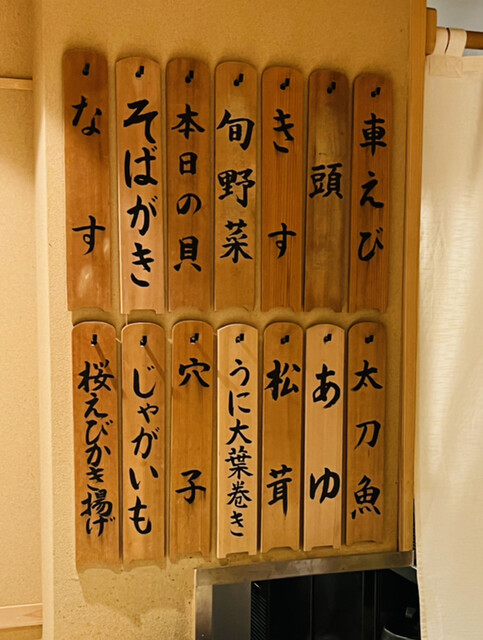 車えび
頭
きす
旬野菜
本日の貝
そばがき
なす
太刀魚
あゆ
松茸
うに大葉巻き
穴子
じゃがいも
桜えびかき揚げ